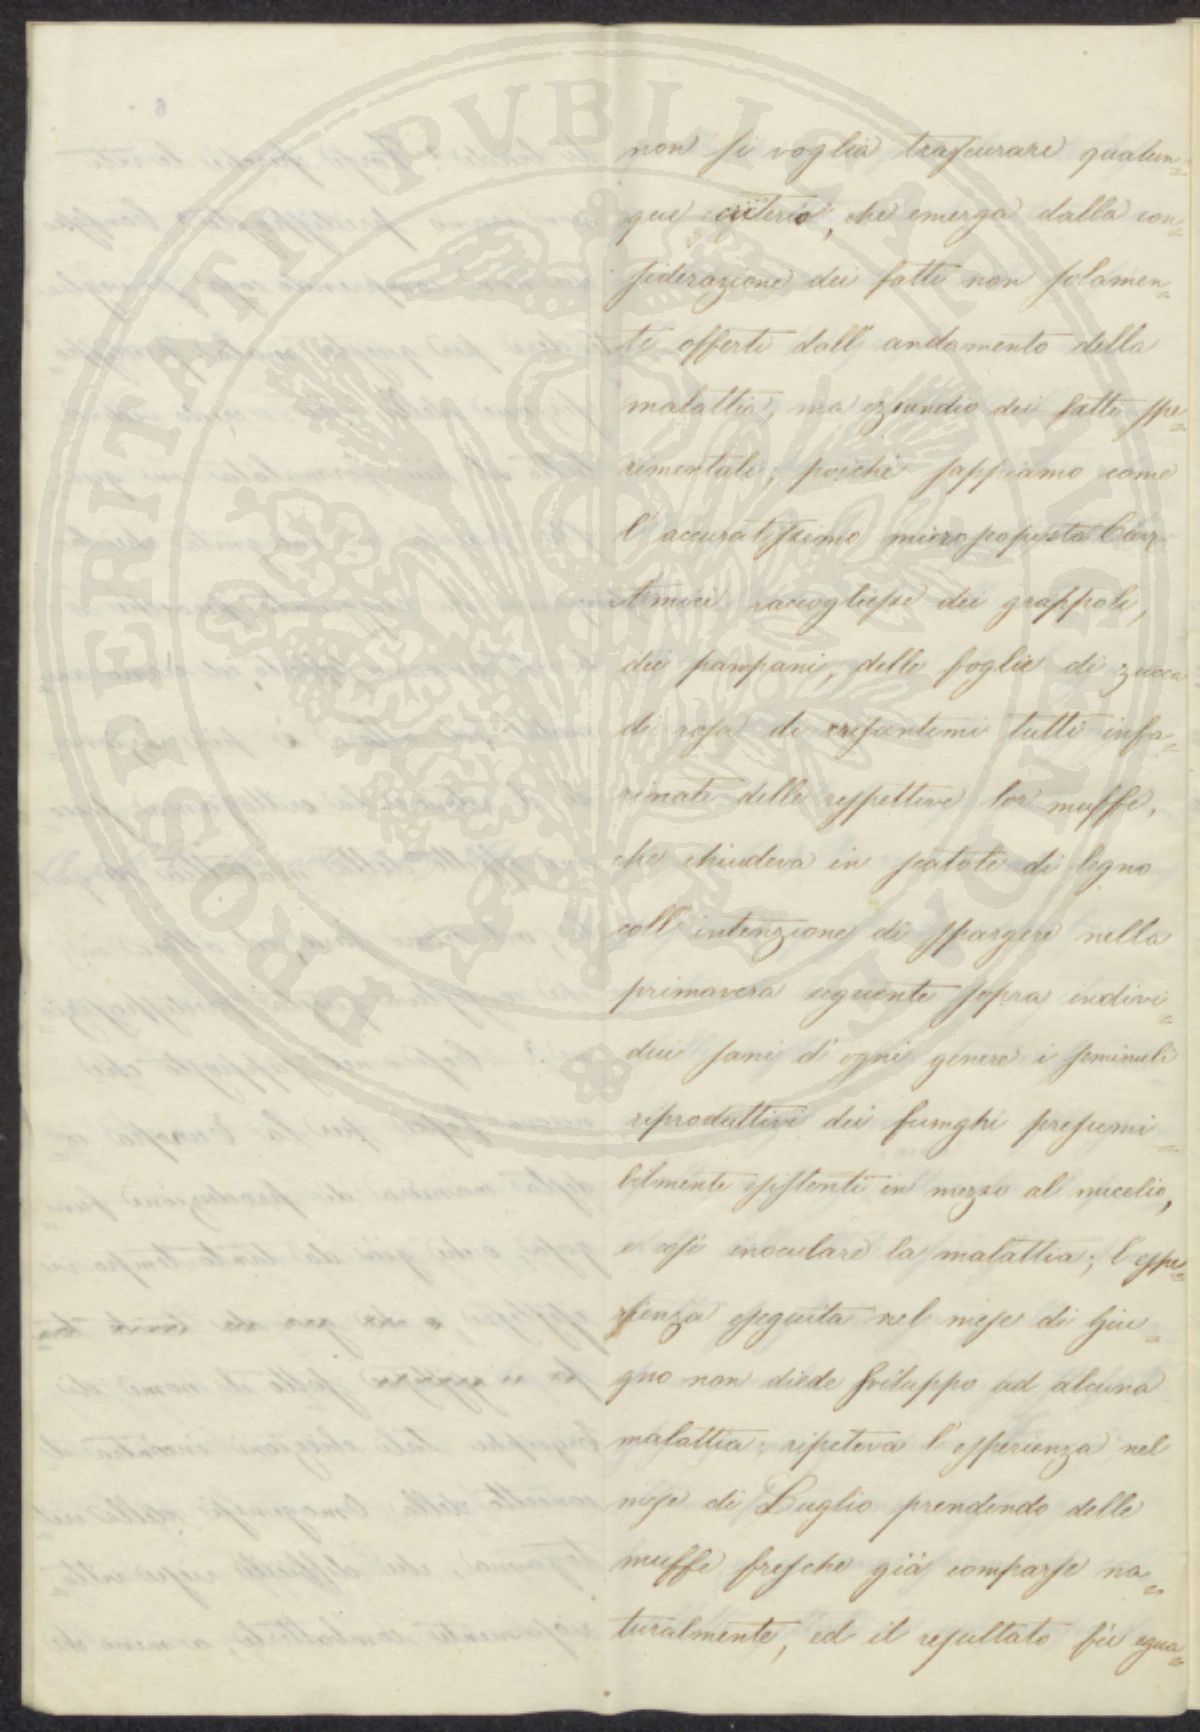 PROSPERITATI PUBLICAE AUGENDAE
non si voglia trascurare qualun=
que criterio, che emerga dalla con=
siderazione dei fatti non solamen=
te offerti dall'andamento della
malattia, ma eziandio dei fatti spe=
rimentali; poiché sappiamo come
l'accuratissimo microscopista Cav.
Amici raccogliesse dei grappoli,
dei pampani, delle foglie di zucca
di rosa di crisantemi tutti infa=
rinati delle respettive lor muffe,
che chiudeva in scatole di legno
coll'intenzione di spargere nella
primavera seguente sopra indivi=
dui sani d'ogni genere i seminuli
riproduttivi dei funghi presumi=
bilmente esistenti in mezzo al micelio,
e così inoculare la malattia; l'espe=
rienza eseguita nel mese di Giu=
gno non diede sviluppo ad alcuna
malattia; ripeteva l'esperienza nel
mese di Luglio prendendo delle
muffe fresche già comparse na=
turalmente, ed il resultato fù egua=